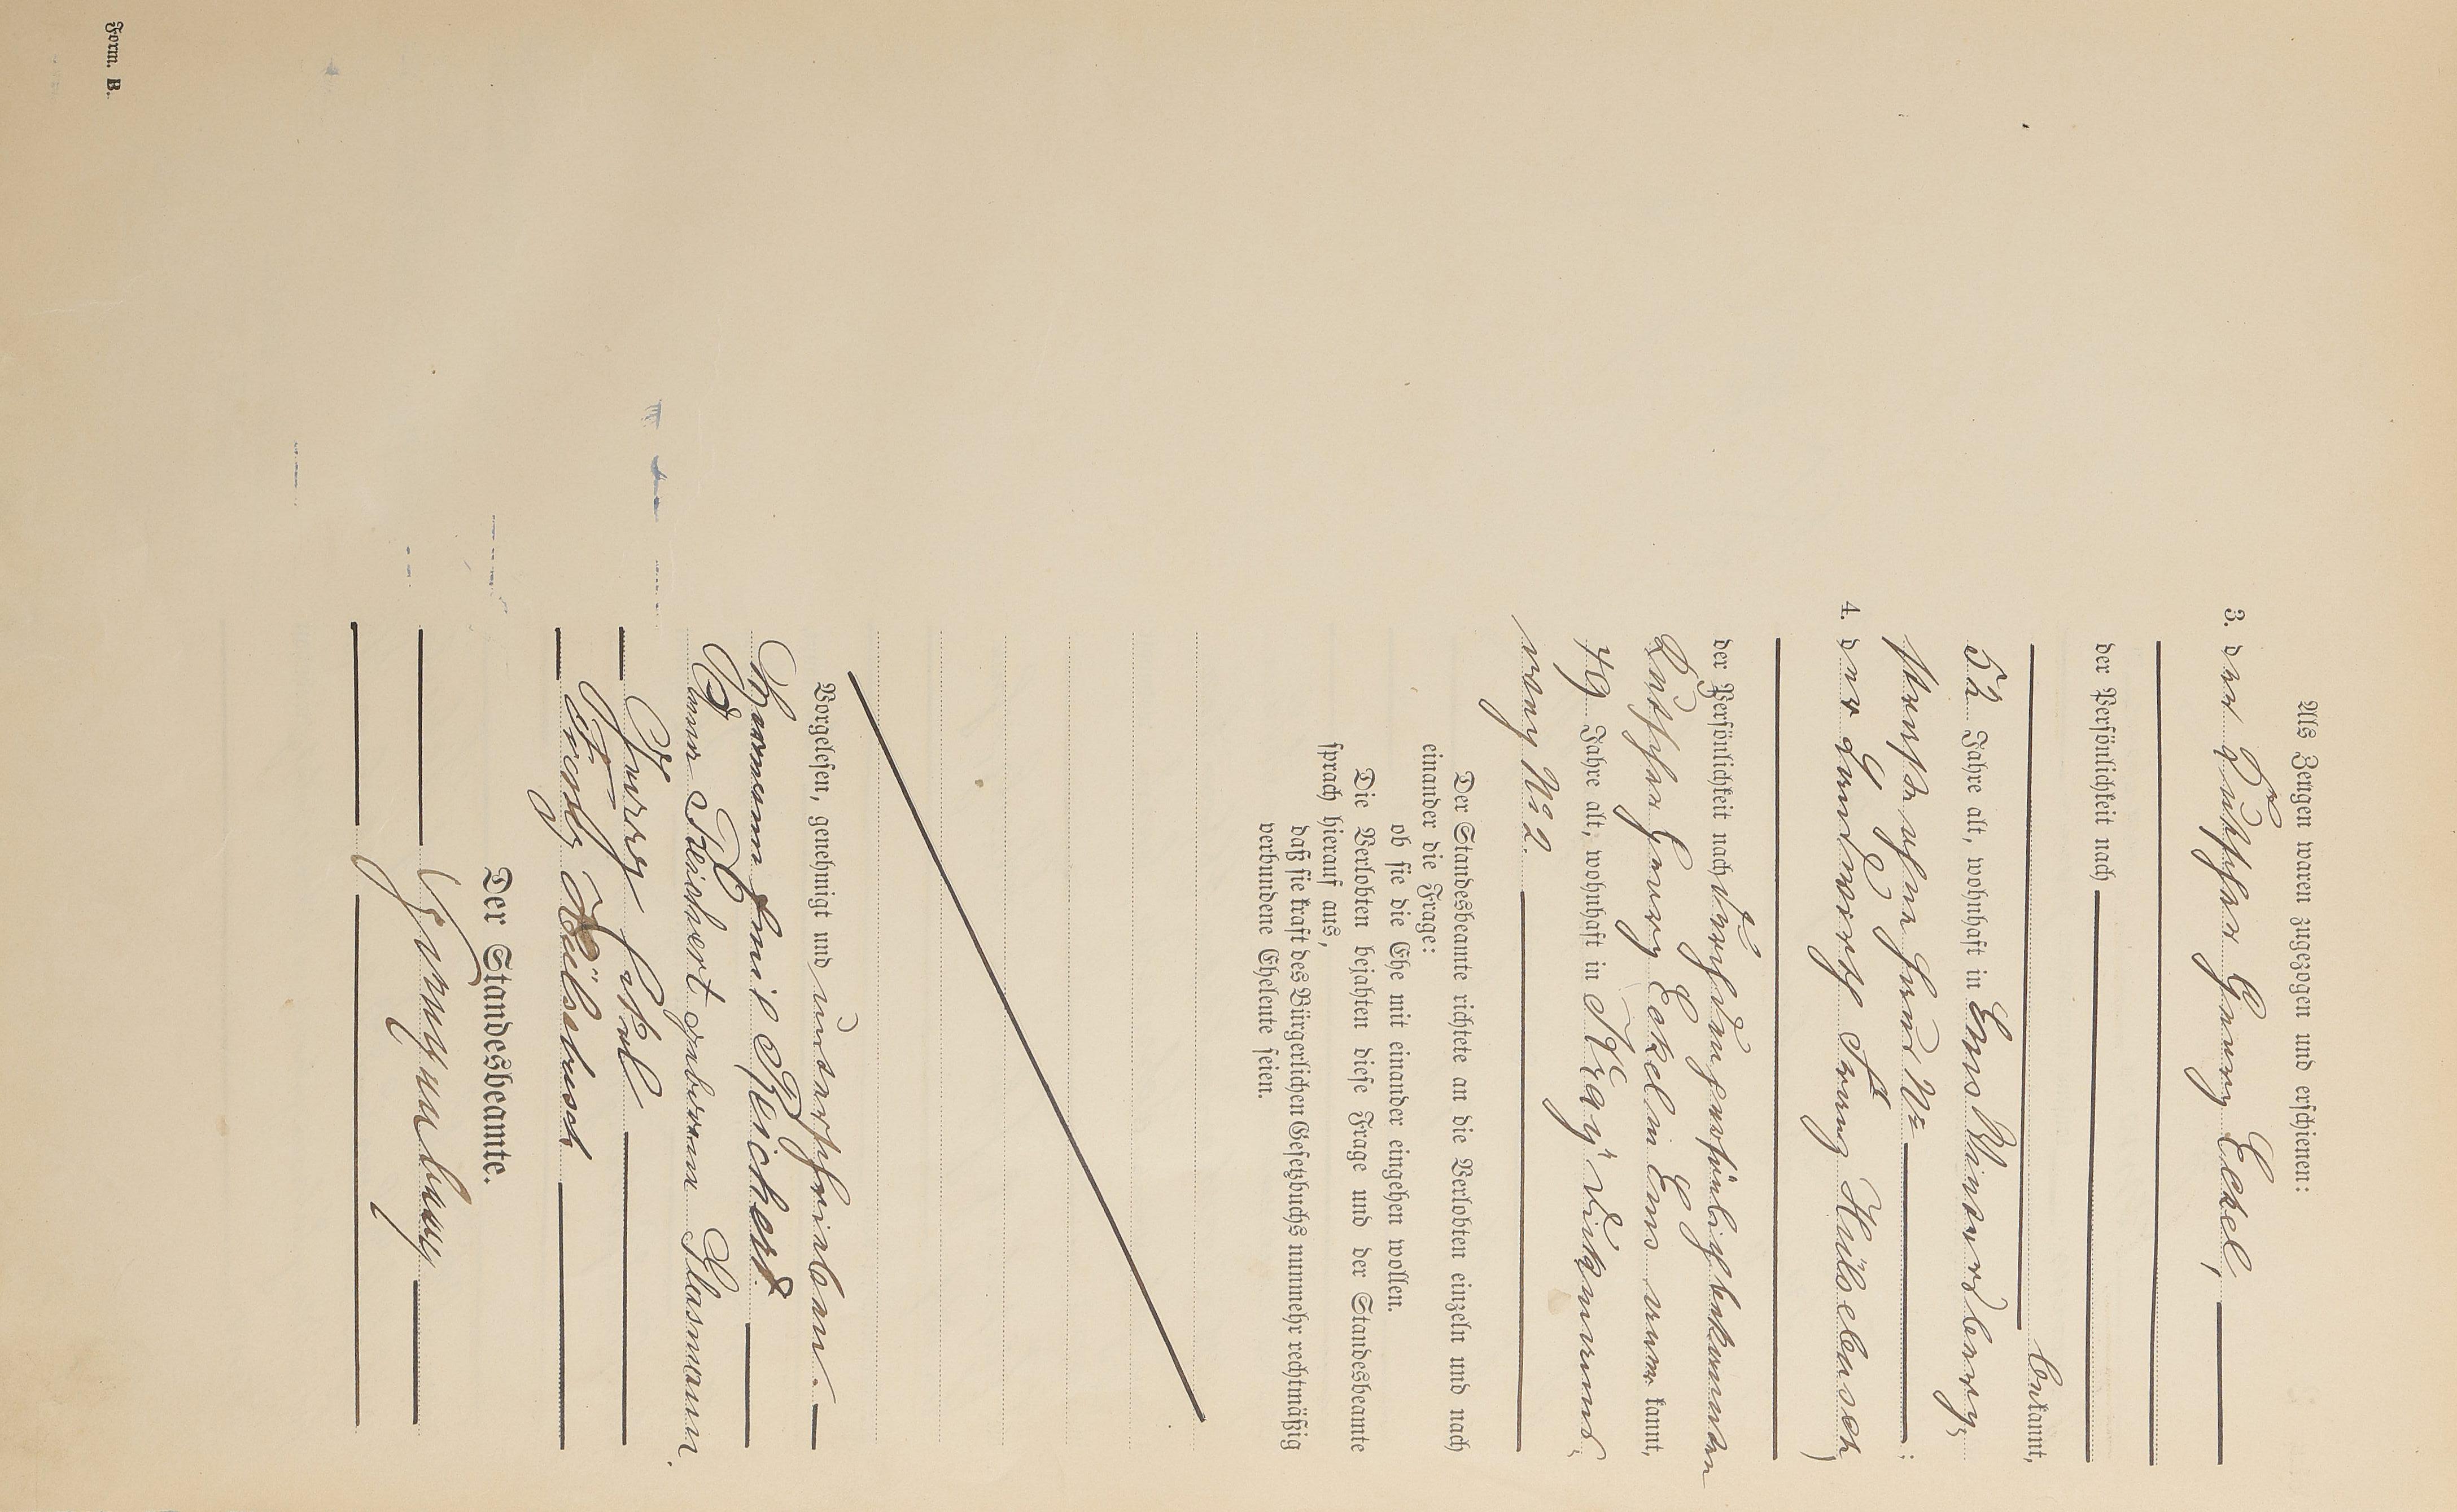 Als Zeugen waren zugezogen und erschienen:
3. der Küfer Georg Eckel,
der Persönlichkeit nach
bekannt,
52 Jahre alt, wohnhaft in Ems
straße ohne Haus No
4. der Landwirth Franz Hülsebusch
der Persönlichkeit nach durch den persönlich bekannten
Georg Eckel in Ems anerkannt,
49 Jahre alt, wohnhaft in Kray,
weg No 2.
Der Standesbeamte richtete an die Verlobten einzeln und nach
einander die Frage:
ob sie die Ehe mit einander eingehen wollen.
Die Verlobten bejahten diese Frage und der Standesbeamte
sprach hierauf aus,
daß sie kraft des Bürgerlichen Gesetzbuchs nunmehr rechtmäßig
verbundene Eheleute seien.
Vorgelesen, genehmigt und unterschrieben.
Hermann Emil Reichert
Reichert geborene Plasmann.
Georg Eckel
Franz Hülsebusch
Der Standesbeamte.
Form. B.